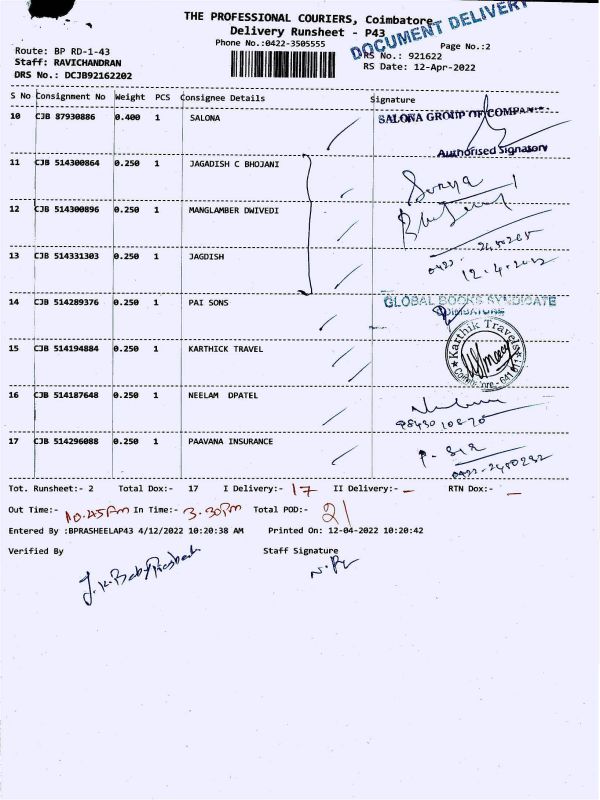 THE PROFESSIONAL COURIERS, Coimbatore
Delivery Runsheet - P43
DOCUMENT DELIVERY
Phone No.:0422-3505555
Page No.:2
Route: BP RD-1-43
DRS No.: 921622
Staff: RAVICHANDRAN
RS Date: 12-Apr-2022
DRS No.: DCJB92162202
S No Consignment No Weight PCS Consignee Details Signature
10 CJB 87930886 0.400 1 SALONA SALONA GROUP OF COMPANIES
Authorised Signatory
11 CJB 514300864 0.250 1 JAGADISH C BHOJANI Surya
12 CJB 514300896 0.250 1 MANGLAMBER DWIVEDI
13 CJB 514331303 0.250 1 JAGDISH
12.4.2022
14 CJB 514289376 0.250 1 PAI SONS GLOBAL BOOKS SYNDICATE
COIMBATORE
15 CJB 514194884 0.250 1 KARTHICK TRAVEL Karthik Travels
16 CJB 514187648 0.250 1 NEELAM DPATEL
17 CJB 514296088 0.250 1 PAAVANA INSURANCE
Tot. Runsheet:- 2 Total Dox:- 17 I Delivery:- 17 II Delivery:- - RTN Dox:- -
Out Time:- 10.45Am In Time:- 3.30Pm Total POD:- 21
Entered By :BPRASHEELAP43 4/12/2022 10:20:38 AM Printed On: 12-04-2022 10:20:42
Verified By Staff Signature